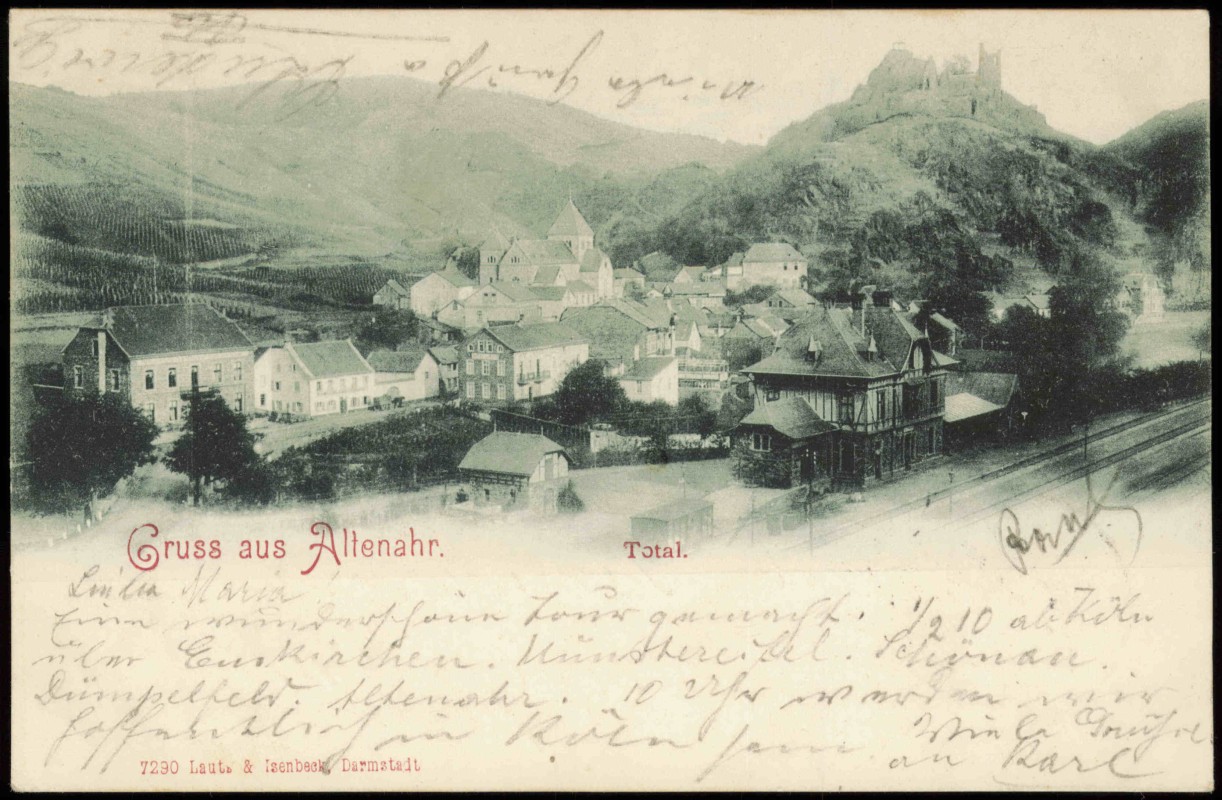 Gruss aus Altenahr.
Total.
Liebe Maria
Eine wunderschöne Tour gemacht. 1/2 10 ab Köln
über Euskirchen. Münstereifel. Schönau.
Dümpelfeld. Altenahr. 10 Uhr werden wir
hoffentlich in Köln sein. Viele Grüße
an Karl
7290 Lautz & Isenbeck, Darmstadt